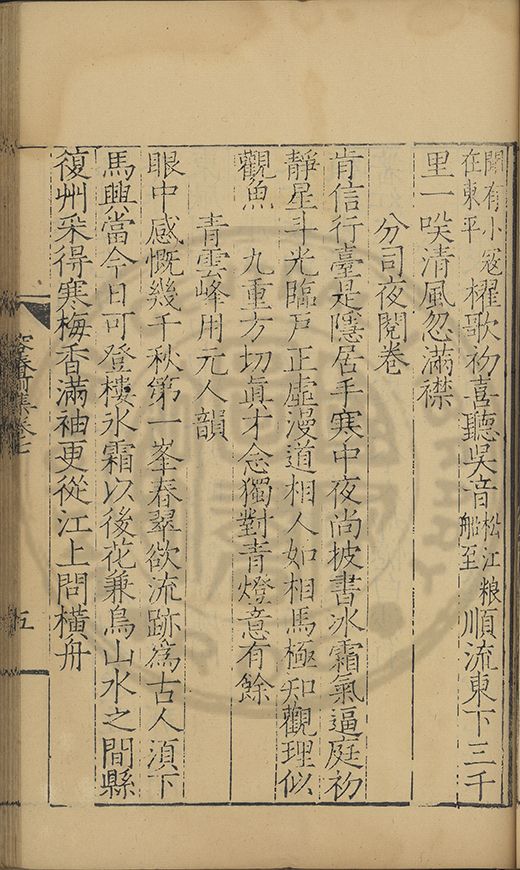 聞有小寇在東平櫂歌初喜聽吳音松江粮船至順流東下三千
里一𥬇清風忽滿襟
分司夜閱卷
肯信行臺是隱居手寒中夜尚披書冰霜氣逼庭初
靜星斗光臨戶正虛漫道相人如相馬極知觀理似
觀魚　九重方切眞才念獨對青燈意有餘
青雲峰用元人韻
眼中感慨幾千秋第一峯春翠欲流跡爲古人湏下
馬興當今日可登樓氷霜以後花兼鳥山水之間縣
復州采得寒梅香滿袖更從江上問橫舟
集卷七
五